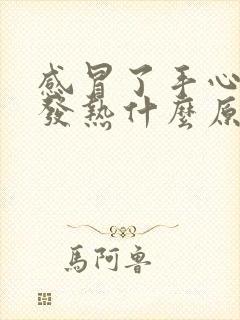 感冒了手心
發熱什麼原
馬阿魯